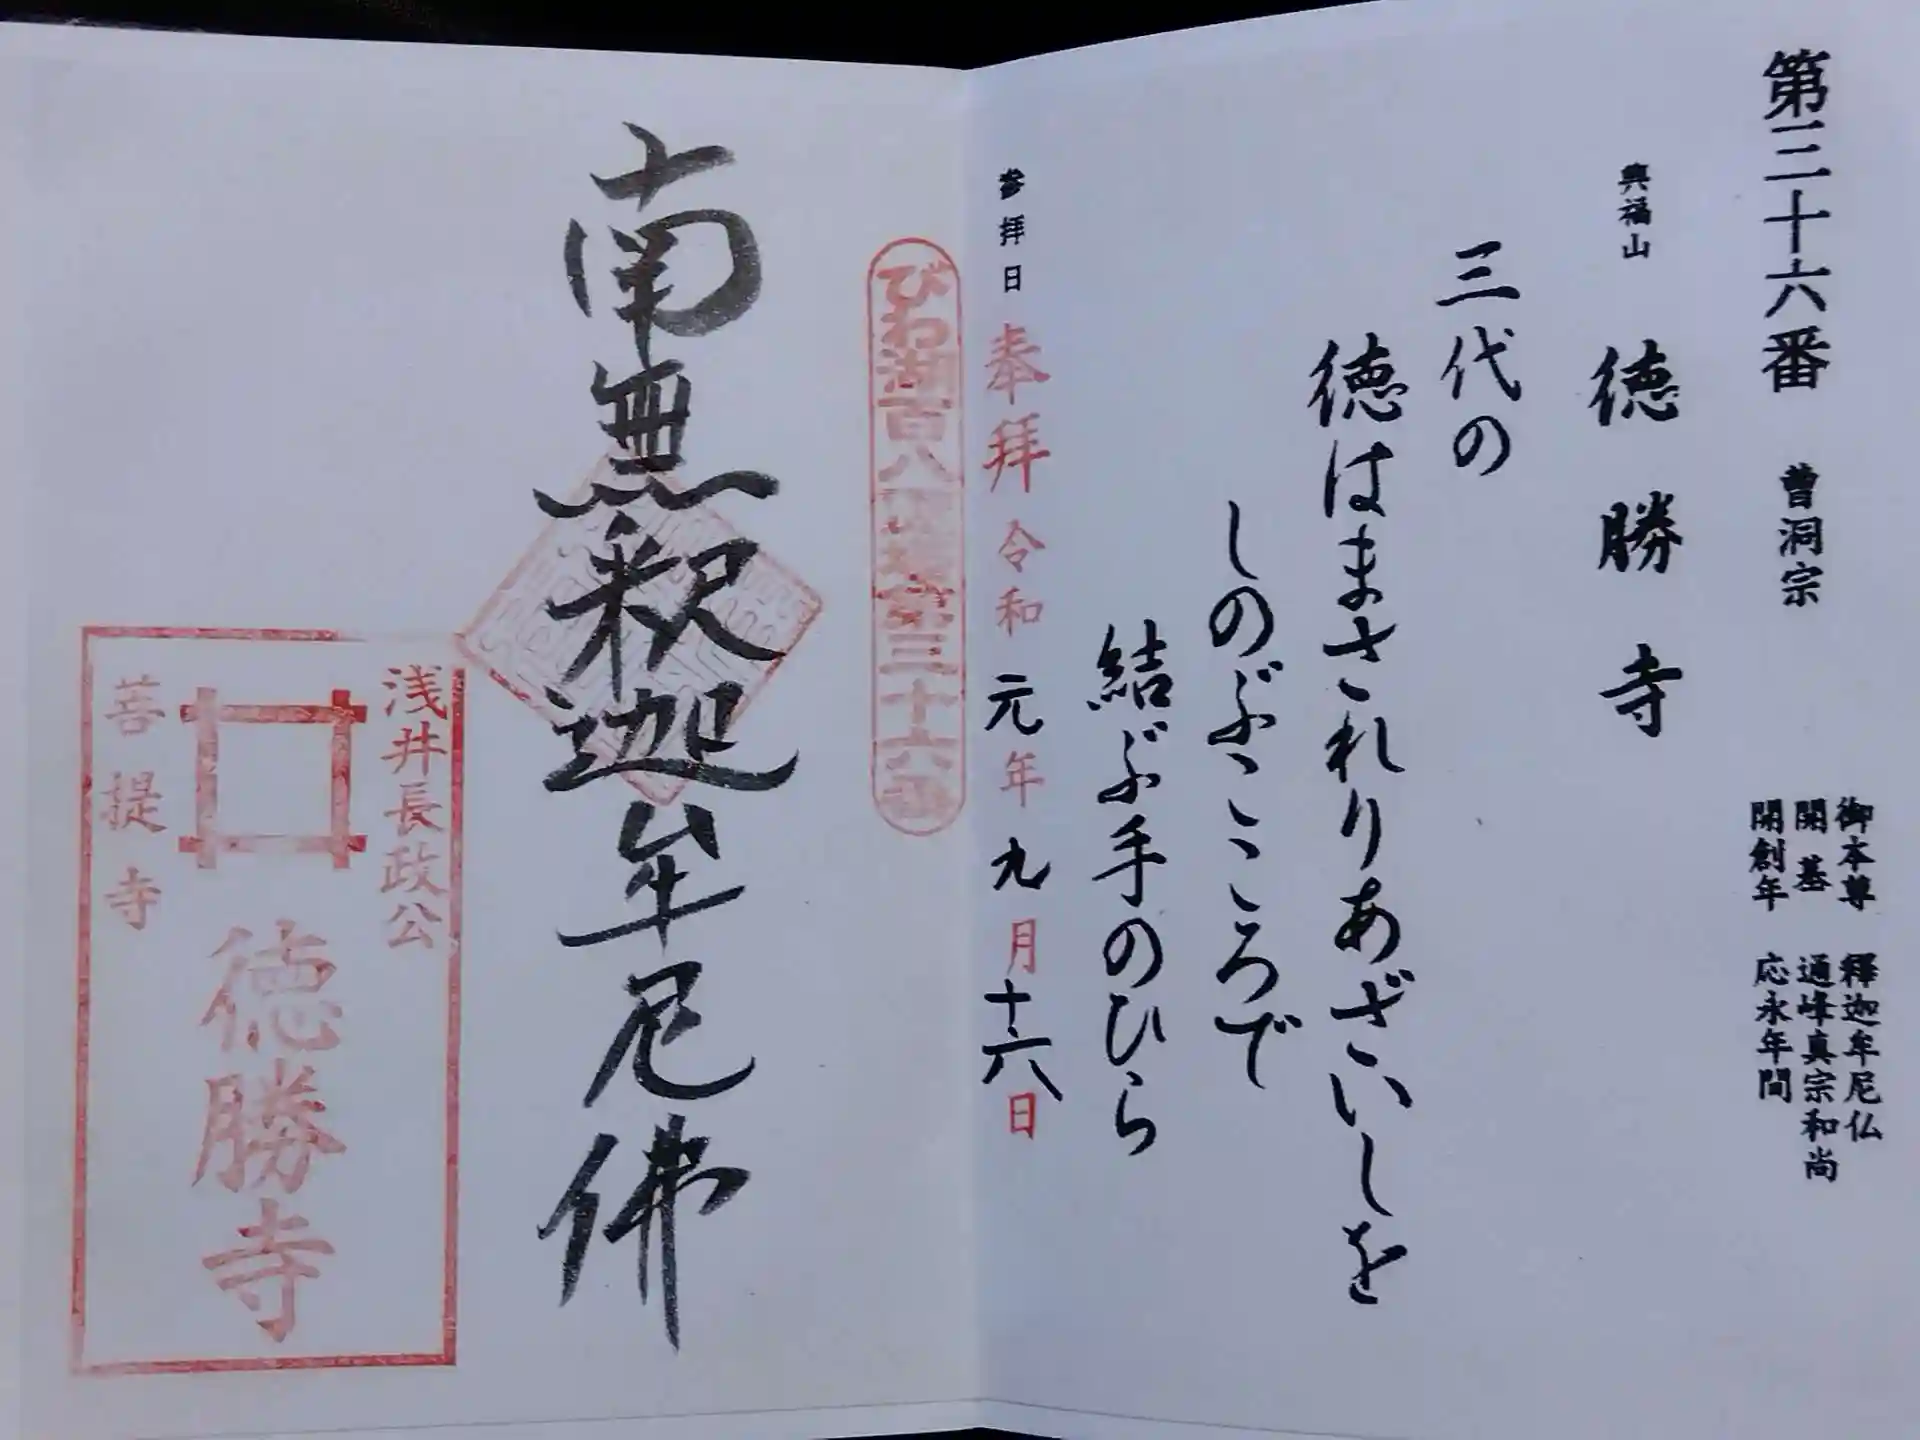 第三十六番 曹洞宗
御本尊 釋迦牟尼仏
開基 通峰真宗和尚
開創年 応永年間
興福山 徳勝寺
三代の
徳はまされりあざいしを
しのぶこころで
結ぶ手のひら
参拝日 奉拝 令和元年九月十六日
びわ湖百八霊場第三十六番
南無釈迦牟尼佛
浅井長政公
菩提寺
徳勝寺